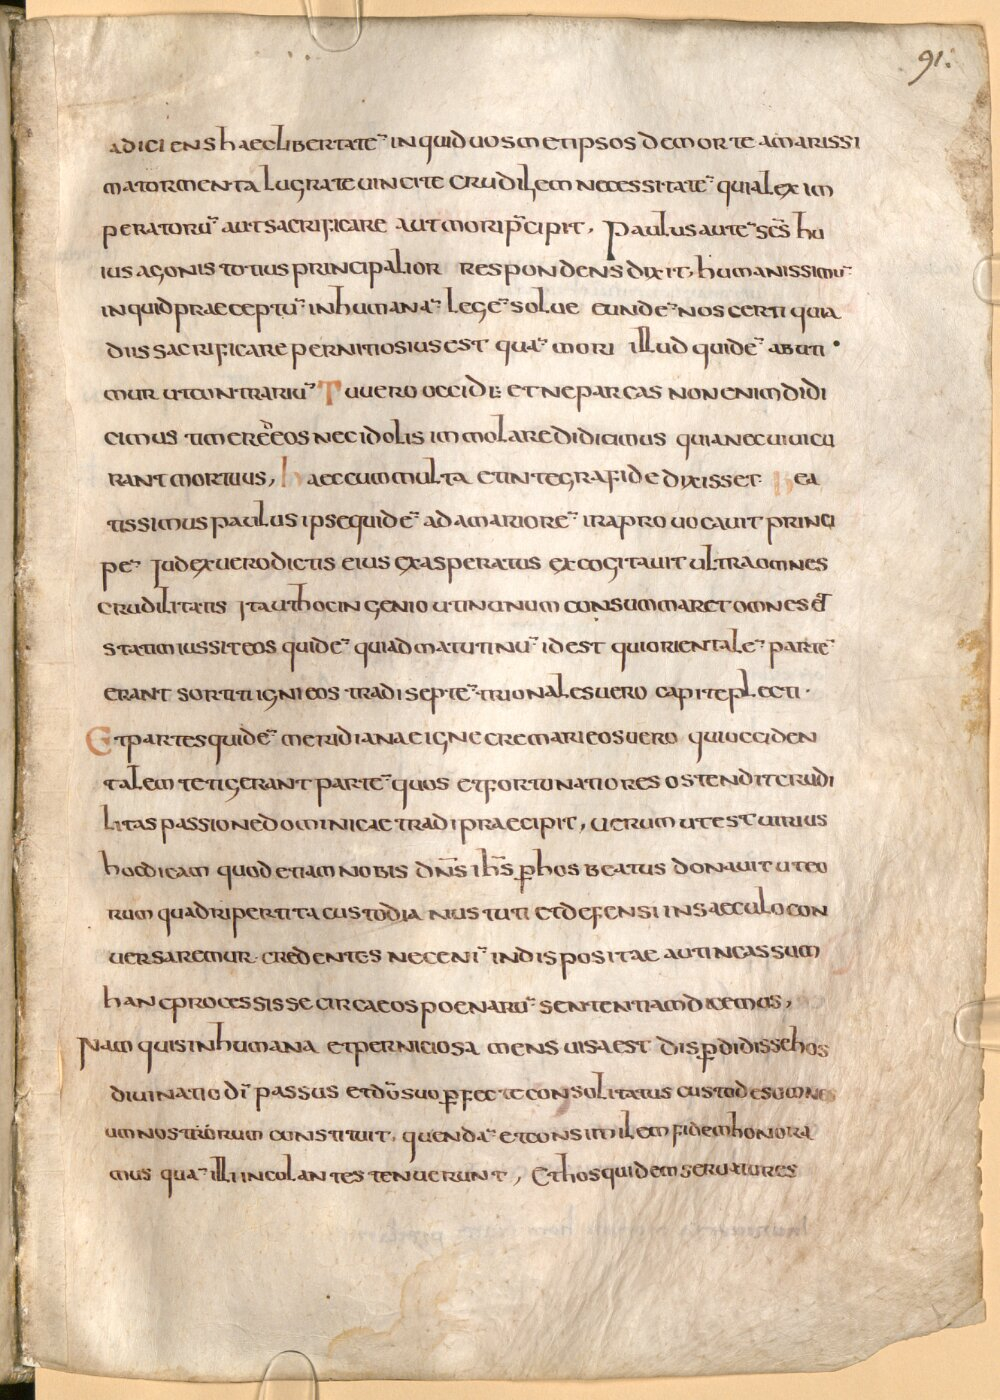 91.
adiciens haec libertatē inquid uosmetipsos de morte amarissi
ma tormenta lugrate uincite crudilem necessitatē quia lex im
peratorū aut sacrificare aut mori p̄cipit, Paulus autē sc̄s hu
ius agonis totius principalior respondens dixit, humanissimū
inquid praeceptū inhumanā legē solue eundē nos certi quia
diis sacrificare pernitiosius est quā mori illud quidē abuti
mur ut contrariū Tu uero occide et ne parcas non enim didi
cimus timere eos nec idolis immolare didicimus quia nec uiui cu
rant mortuus, haec cum multa et integra fide dixisset bea
tissimus paulus ipse quidē ad amariorē ira prouocauit princi
pē Judex uero dictis eius exasperatus excogitauit ultra omnes
crudilitatis Jta ut hoc ingenio ut in unum consummaret omnes et
statim iussit eos quidē qui ad matutinū id est qui orientalē partē
erant sortiti igni eos tradi septētrionales uero capite plecti.
Et partes quidē meridianae igne cremari eos uero qui occiden
talem tetigerant partē quos et fortunatiores ostendit crudi
litas passione dominicae tradi praecipit, uerum ut est uirius
hoc dicam quod etiam nobis dn̄s ih̄s p̱ hos beatus donauit ut eo
rum quadripertita custodia nius tuti et defensi in saeculo con
uersaremur credentes nec enī indispositae aut incassum
hanc processisse circa eos poenarū sententiam dicemus,
Nam quis inhumana et perniciosa mens uisa est disp̱didisse hos
diuinatio dī passus et dō suo p̱fecte consolitatus custodes omnes
um nostrorum constituit. quendā et consimilem fidem honora
mus quā illi incolantes tenuerunt, Et hos quidem seruatures